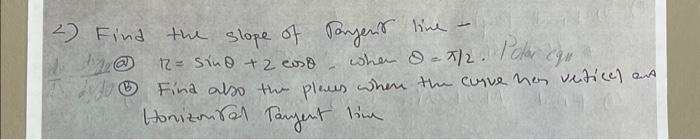 2) Find the slope of Tangent line -
ⓐ r = sinθ + 2 cosθ, when θ = π/2. Polar eqn
ⓑ Find also the places when the curve has vertical and
Horizontal Tangent line